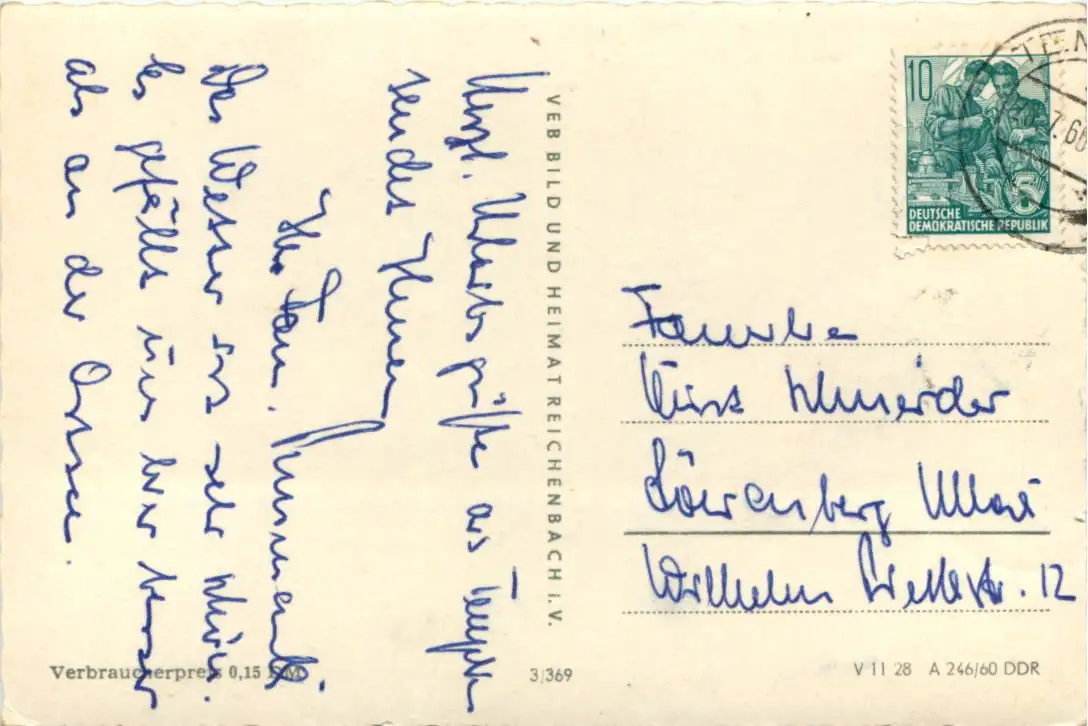 Herzl. Urlaubsgrüße aus Templin
senden Ihnen
Ihre Fam.
Das Wetter ist sehr schön.
Es gefällt uns hier besser
als an der Ostsee.
VEB BILD UND HEIMAT REICHENBACH i. V.
10
DEUTSCHE
DEMOKRATISCHE REPUBLIK
5
7.60
Familie
Kurt Schneider
Löwenberg Mark
Wilhelm Pieckstr. 12
Verbraucherpreis 0,15 DM
3/369
V 11 28 A 246/60 DDR